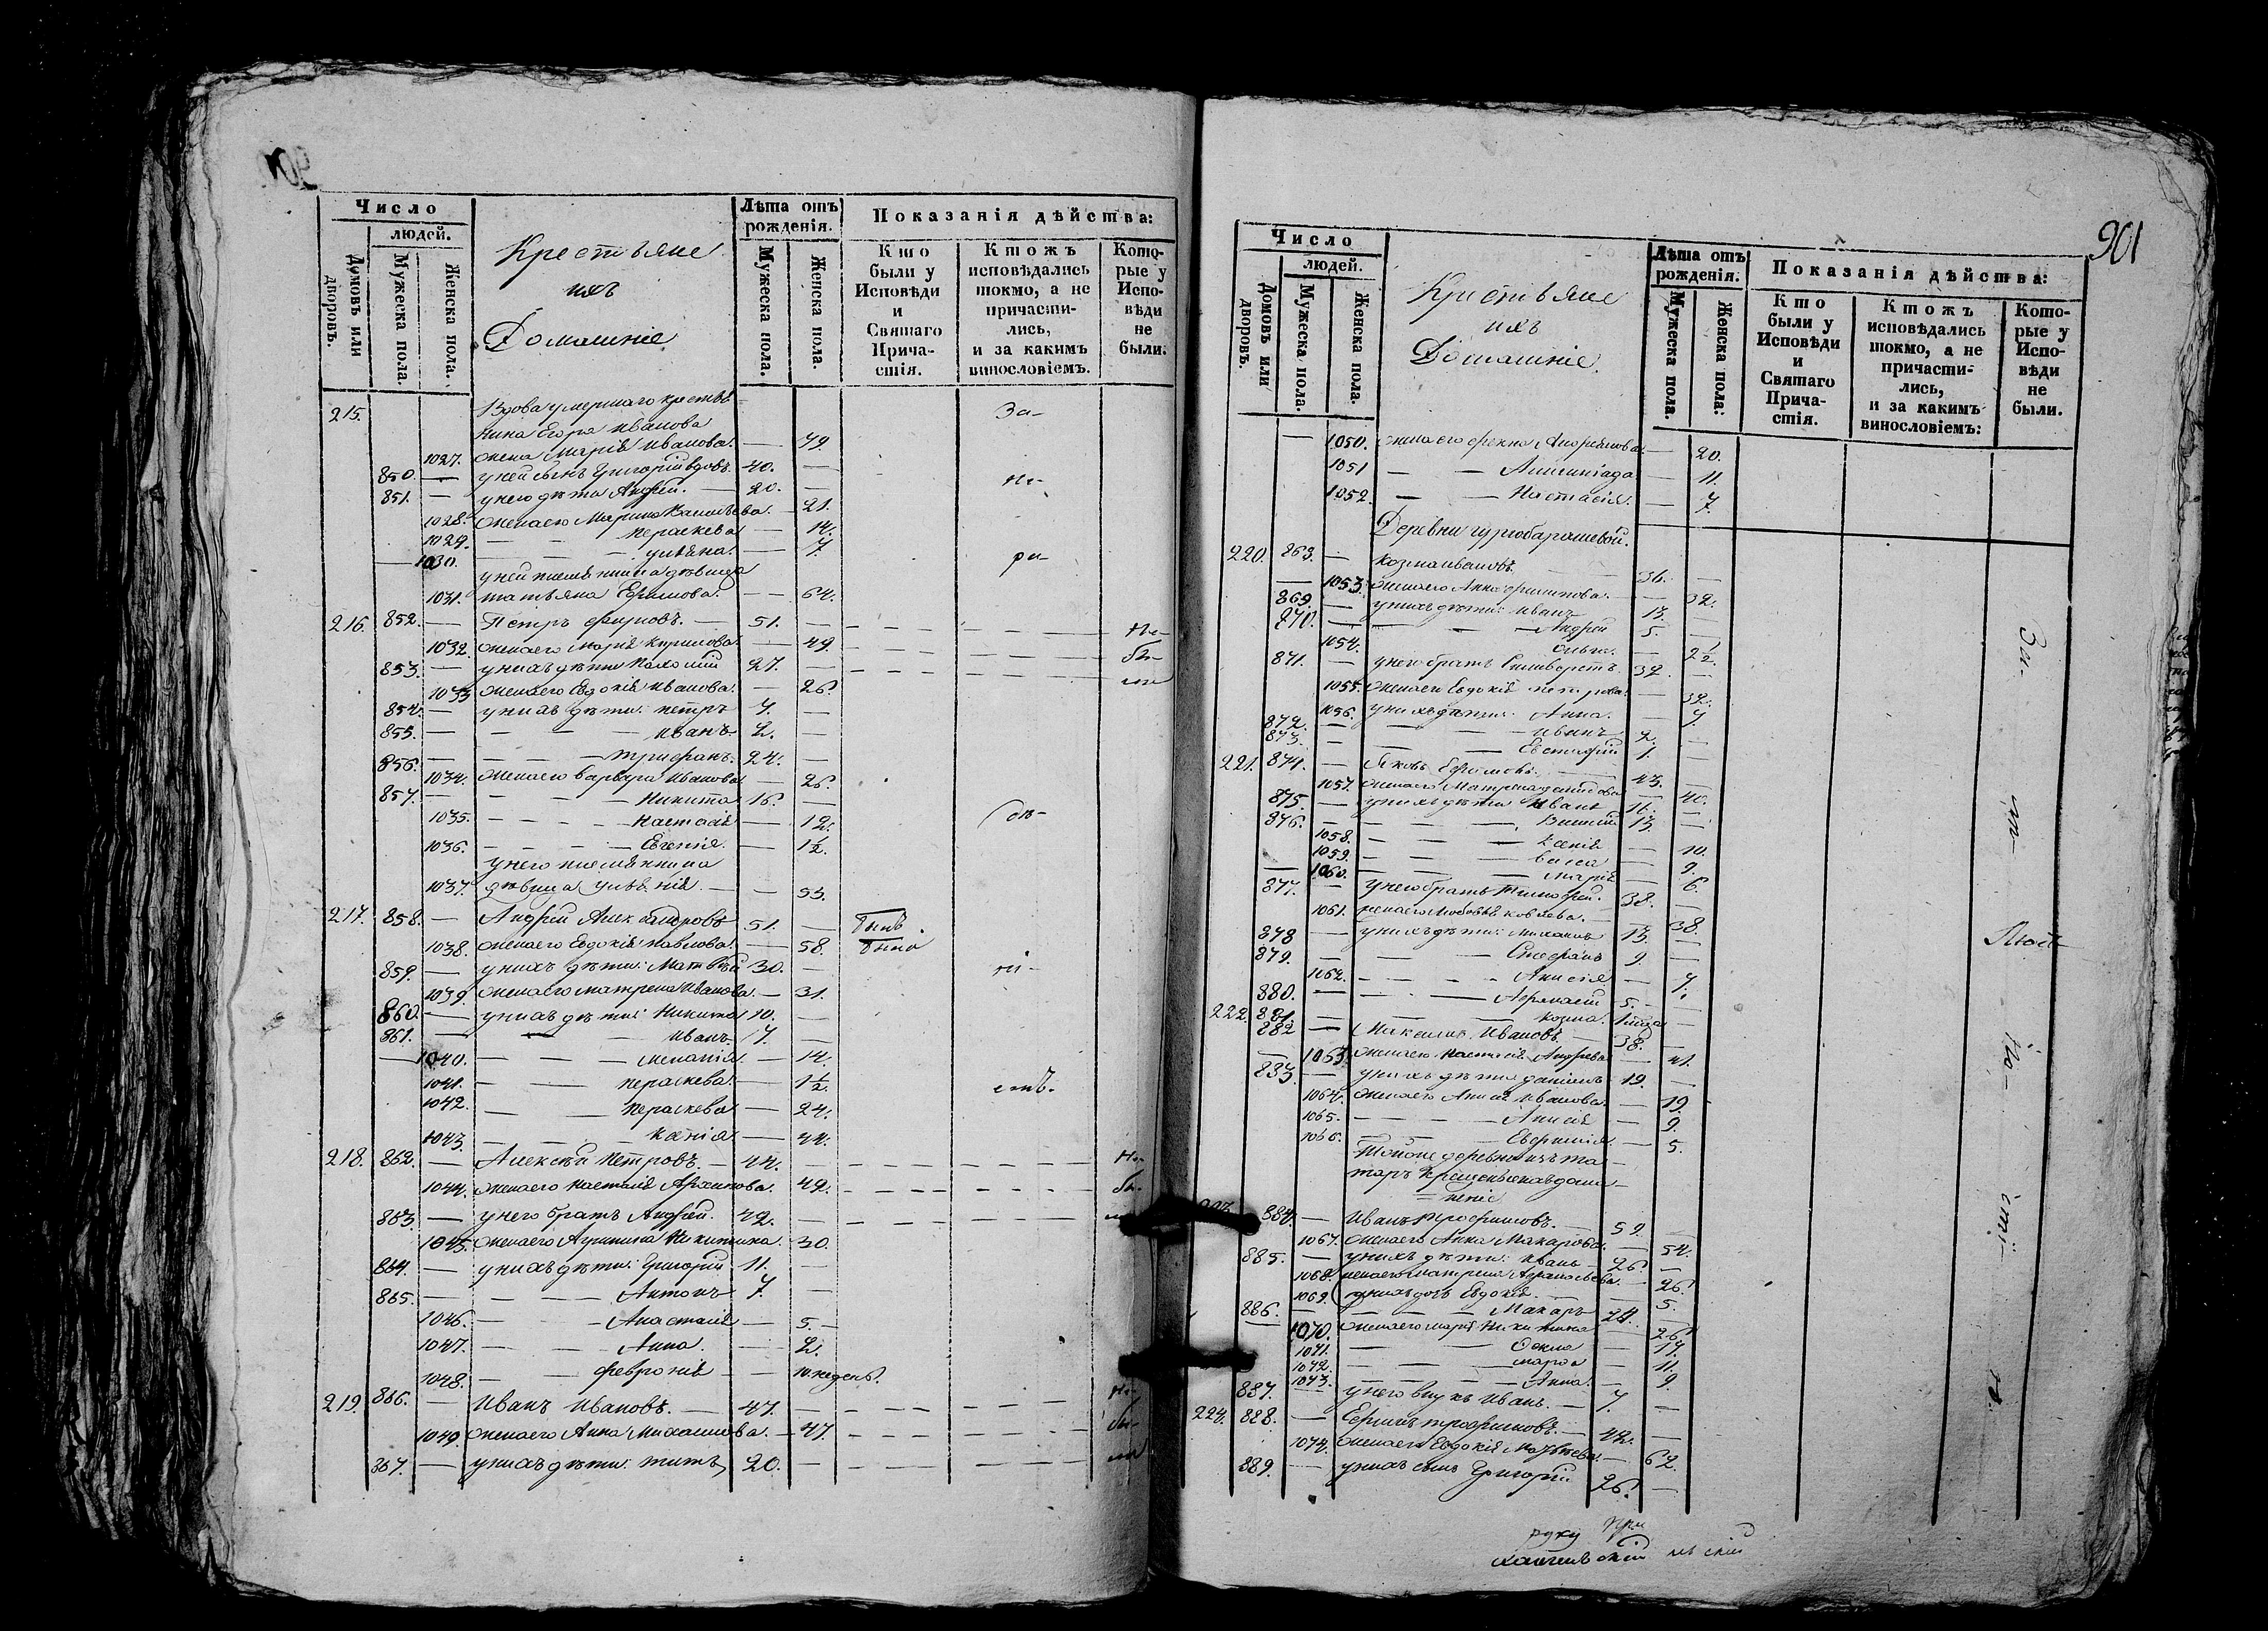 901
Число
людей.
Домовъ или дворовъ.
Мужеска пола.
Женска пола.
Крестьяне
ихъ
Домашніе
Лѣта отъ рожденія.
Мужеска пола.
Женска пола.
Показанія дѣйства:
Кто были у Исповѣди и Святаго Причастія.
Ктожъ исповѣдались токмо, а не причастились, и за какимъ винословіемъ.
Которые у Исповѣди не были.
215. Вдова умершаго крестья-
нина Егора Иванова
1027. жена Марія Иванова. — 49.
850. — у ней сынъ Григорій вдовъ. 40. —
851. — у него дѣти Андрей. — 20. —
1028. жена его Марина Васильева. — 21.
1029. — — Параскева — 14.
1030. — — — Уліяна. — 7.
у ней племянница дѣвица
1031. Татьяна Ефимова. — — 64.
216. 852. — Петръ — 51. —
1032. жена его Марія Кирилова. — 49.
853. — у нихъ дѣти 27. —
1033 жена его Евдокія Иванова. — 26.
854. — у нихъ дѣти: Петръ 4. —
855. — — — — Иванъ. 2. —
856. — — — — Трифанъ. 24. —
1034. жена его Варвара Иванова — 26.
857. — — — — Никита 16. —
1035. — — — — Настасія — 12.
1036. — — — — Евгенія. — 1½.
у него племянница
1037. дѣвица — — 53.
217. 858. — Андрей Александровъ 51. —
1038. жена его Евдокія Павлова. — 58.
859. — у нихъ дѣти: Матвѣй 30. —
1039. жена его Матрена Иванова. — 31.
860. — у нихъ дѣти: Никита 10. —
861. — — — Иванъ. 7. —
1040. — — — Меланія — 14.
1041. — — Параскева. — 1½.
1042. — — Параскева — 24.
1043. — — — Ксенія — 44.
218. 862. — Алексѣй Петровъ. — 44. —
1044. жена его Настасія Архипова. 49.
863. — у него братъ Андрей. 42. —
1045. жена его Акулина Никитина. 30.
864. — у нихъ дѣти: Григорій 11. —
865. — — — — Антонъ 7. —
1046. — — — Анастасія — 5. —
1047. — — — Анна. — 2.
1048. — — Февронія — — 10. недель.
219. 866. — Иванъ Ивановъ. — 47. —
1049. жена его Анна Михаилова. — 47.
867. — у нихъ дѣти: Титъ, 20. —
901
Число
людей.
Домовъ или дворовъ.
Мужеска пола.
Женска пола.
Крестьяне
ихъ
Домашніе.
Лѣта отъ рожденія.
Мужеска пола.
Женска пола:
Показанія дѣйства:
Кто были у Исповѣди и Святаго Причастія.
Ктожъ исповѣдались токмо, а не причастились, и за какимъ винословіемъ:
Которые у Исповѣди не были.
— 1050. жена его Фекла — 20.
1051 — — — 11.
1052. — — Настасія. — 7
Деревни
220. 868. — Козма Ивановъ. 36. —
— 1053. жена его Анна Филипова. — 32.
869. — у нихъ дѣти: Иванъ 13. —
870. — — — Андрей 5. —
1054. Ольга. — 2½.
871. — у него братъ Силиверстъ 32. —
1055. жена его Евдокія Петрова. — 32.
1056. у нихъ дѣти: Анна. — 7
872. — — — — Иванъ 2. —
873. — — — Евстафій 1. —
221. 874. — Яковъ Ефимовъ. 43. —
1057. жена его Матрена Данилова — 40.
875. — у нихъ дѣти Иванъ 16. —
876. — — — — 13. —
1058. — — — Ксенія — 10.
1059. — — — Васса — 9.
1060. — — — Марія — 6.
877. — у него братъ Тимофей. 38. —
1061. жена его Любовь — 38.
878 — у нихъ дѣти: Михаилъ 13. —
879. — — — Стефанъ 9. —
1062. — — — Анисія — 7.
880. — — — Афанасій 5. —
881. — — — Козма. —
222. 882 — Максимъ Ивановъ. — 38. —
— 1063. жена его Настасія Андреева — 41.
883. — у нихъ дѣти Даніилъ 19. —
1064. жена его Анна Иванова. — 19
1065. — — — Анисія — 9.
1066. — — — Евфимія. — 5.
884. — Иванъ Трофимовъ. — 59. —
1067. жена его Анна Макарова. — 54.
885. — у нихъ дѣти: — 26. —
1068. жена его Матрена Афанасьева. — 26.
1069. у нихъ дочь Евдокія. — 5.
886. — — — — Макаръ 24. —
1070. жена его Марія Никитина — 26.
1071. — — Фекла — 17.
1072. — — Марфа — 11.
1073. — — — Анна. — 9.
887. у него внукъ Иванъ. — 7. —
224. 888. — Ефимъ Трофимовъ. — 42. —
1074. жена его Евдокія — 62.
889. — у нихъ сынъ Григорій 26. —
руку при